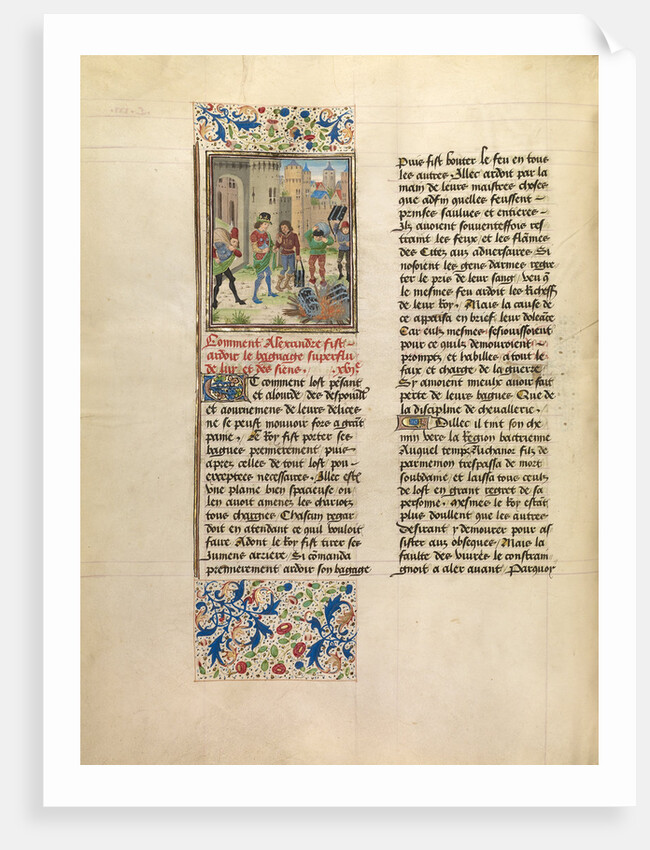 Comment Alexandre fist
ardoir le baguage superflu
de luy et des siens. .xvj.e
Et comment lost pesant
et alourde des despouilles
et aournemens de leurs delices
ne se peust mouvoir fors a grãt
paine. Le Roy fist porter ses
bagues premierement puis
apres celles de tout lost
exceptees necessaires. Illec estoit
une plaine bien spacieuse ou
len avoit amenez les chariotz
tous charges Chascun regar
doit en atendant ce quil vouloit
faire Adont le Roy fist tirer ses
Jumens arriere. Si cõmanda
premierement ardoir son bagage
Puis fist bouter le feu en tous
les autres. Illec ardoit par la
main de leurs maistres choses
que adfin quelles feussent
prinses saulves et entieres
Ilz avoient souventeffois res
traint les feux et les flãmes
des Citez aux adversaires Si
nosoient les gens darmes regre
ter le pris de leur sang veu q̃
le mesmes feu ardoit les Richesses
de leur Roy. Mais la cause de
ce appaisa en brief leur doleãce
Car eulx mesmes sesiouissoient
pour ce quilz demouroient
promptz et habilles a tout le
faix et charge de la guerre
Sy amoient mieulx avoir fait
perte de leurs bagues Que de
la discipline de chevallerie.
Dillec il tint son che
min vers la Region bactrienne
Auquel temps Nichanor filz de
parmenion trespassa de mort
soubdaine et laissa tous ceulx
de lost en grant regret de sa
personne. Mesmes le Roy estãt
plus doullent que les autres
Desirant y demourer pour as
sister aux obseques. Mais la
faulte des vivres le constrain
gnoit a aler avant. Parquoy